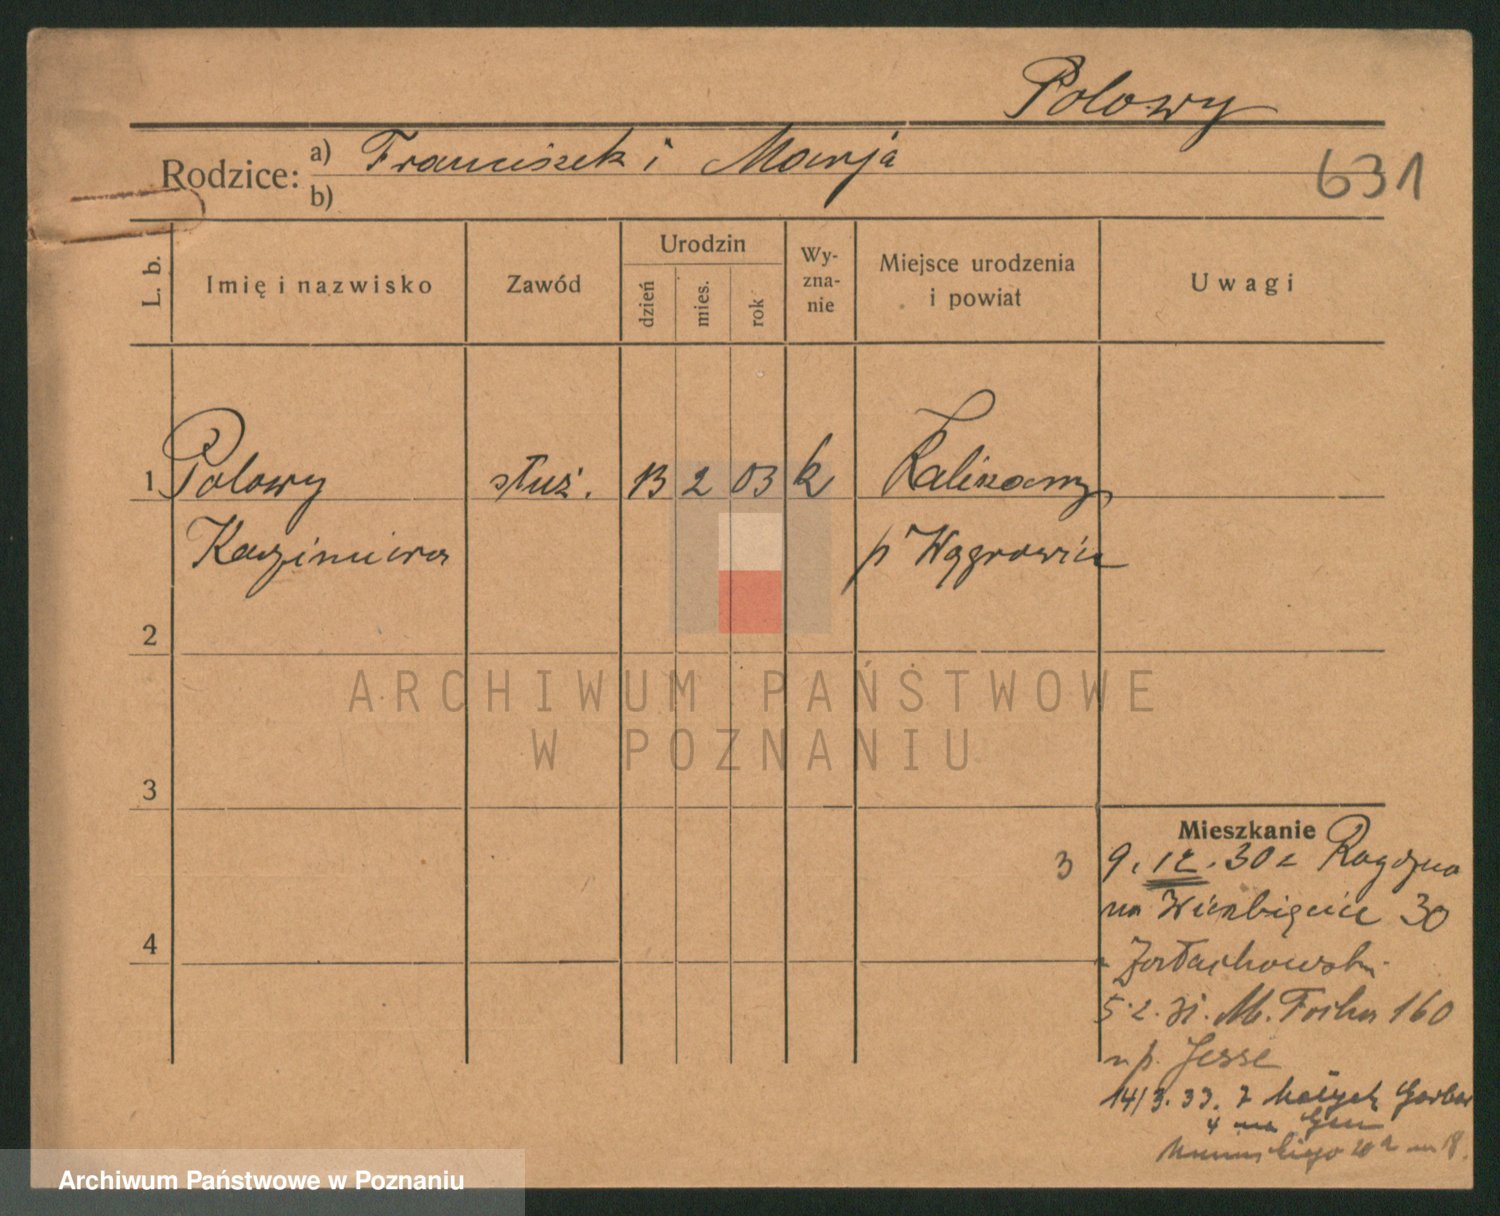 Polowy
Rodzice: a) Franciszek i Marja
b)
631
L. b.
Imię i nazwisko
Zawód
Urodzin
dzień
mies.
rok
Wy-
zna-
nie
Miejsce urodzenia
i powiat
Uwagi
1 Polowy służ. 13 2 03 k Kaliszany
Kazimiera p Wągrowiec
2
ARCHIWUM PAŃSTWOWE
W POZNANIU
3
Mieszkanie
3 9. 12. 30 z Rogoźna
na Wierzbięcice 30
5. 2. 31. M. Focha 160
u p. Jesse
14/3. 33. z Małych Garbar
4 na
20a m 18.
4
Archiwum Państwowe w Poznaniu